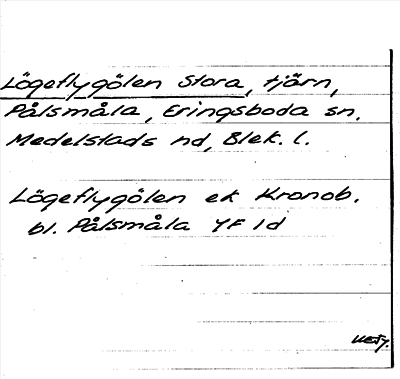 Lögeflygölen Stora, tjärn,
Pålsmåla, Eringsboda sn.
Medelstads hd, Blek. l.
Lögeflygölen ek Kronob.
bl. Pålsmåla YF 1d